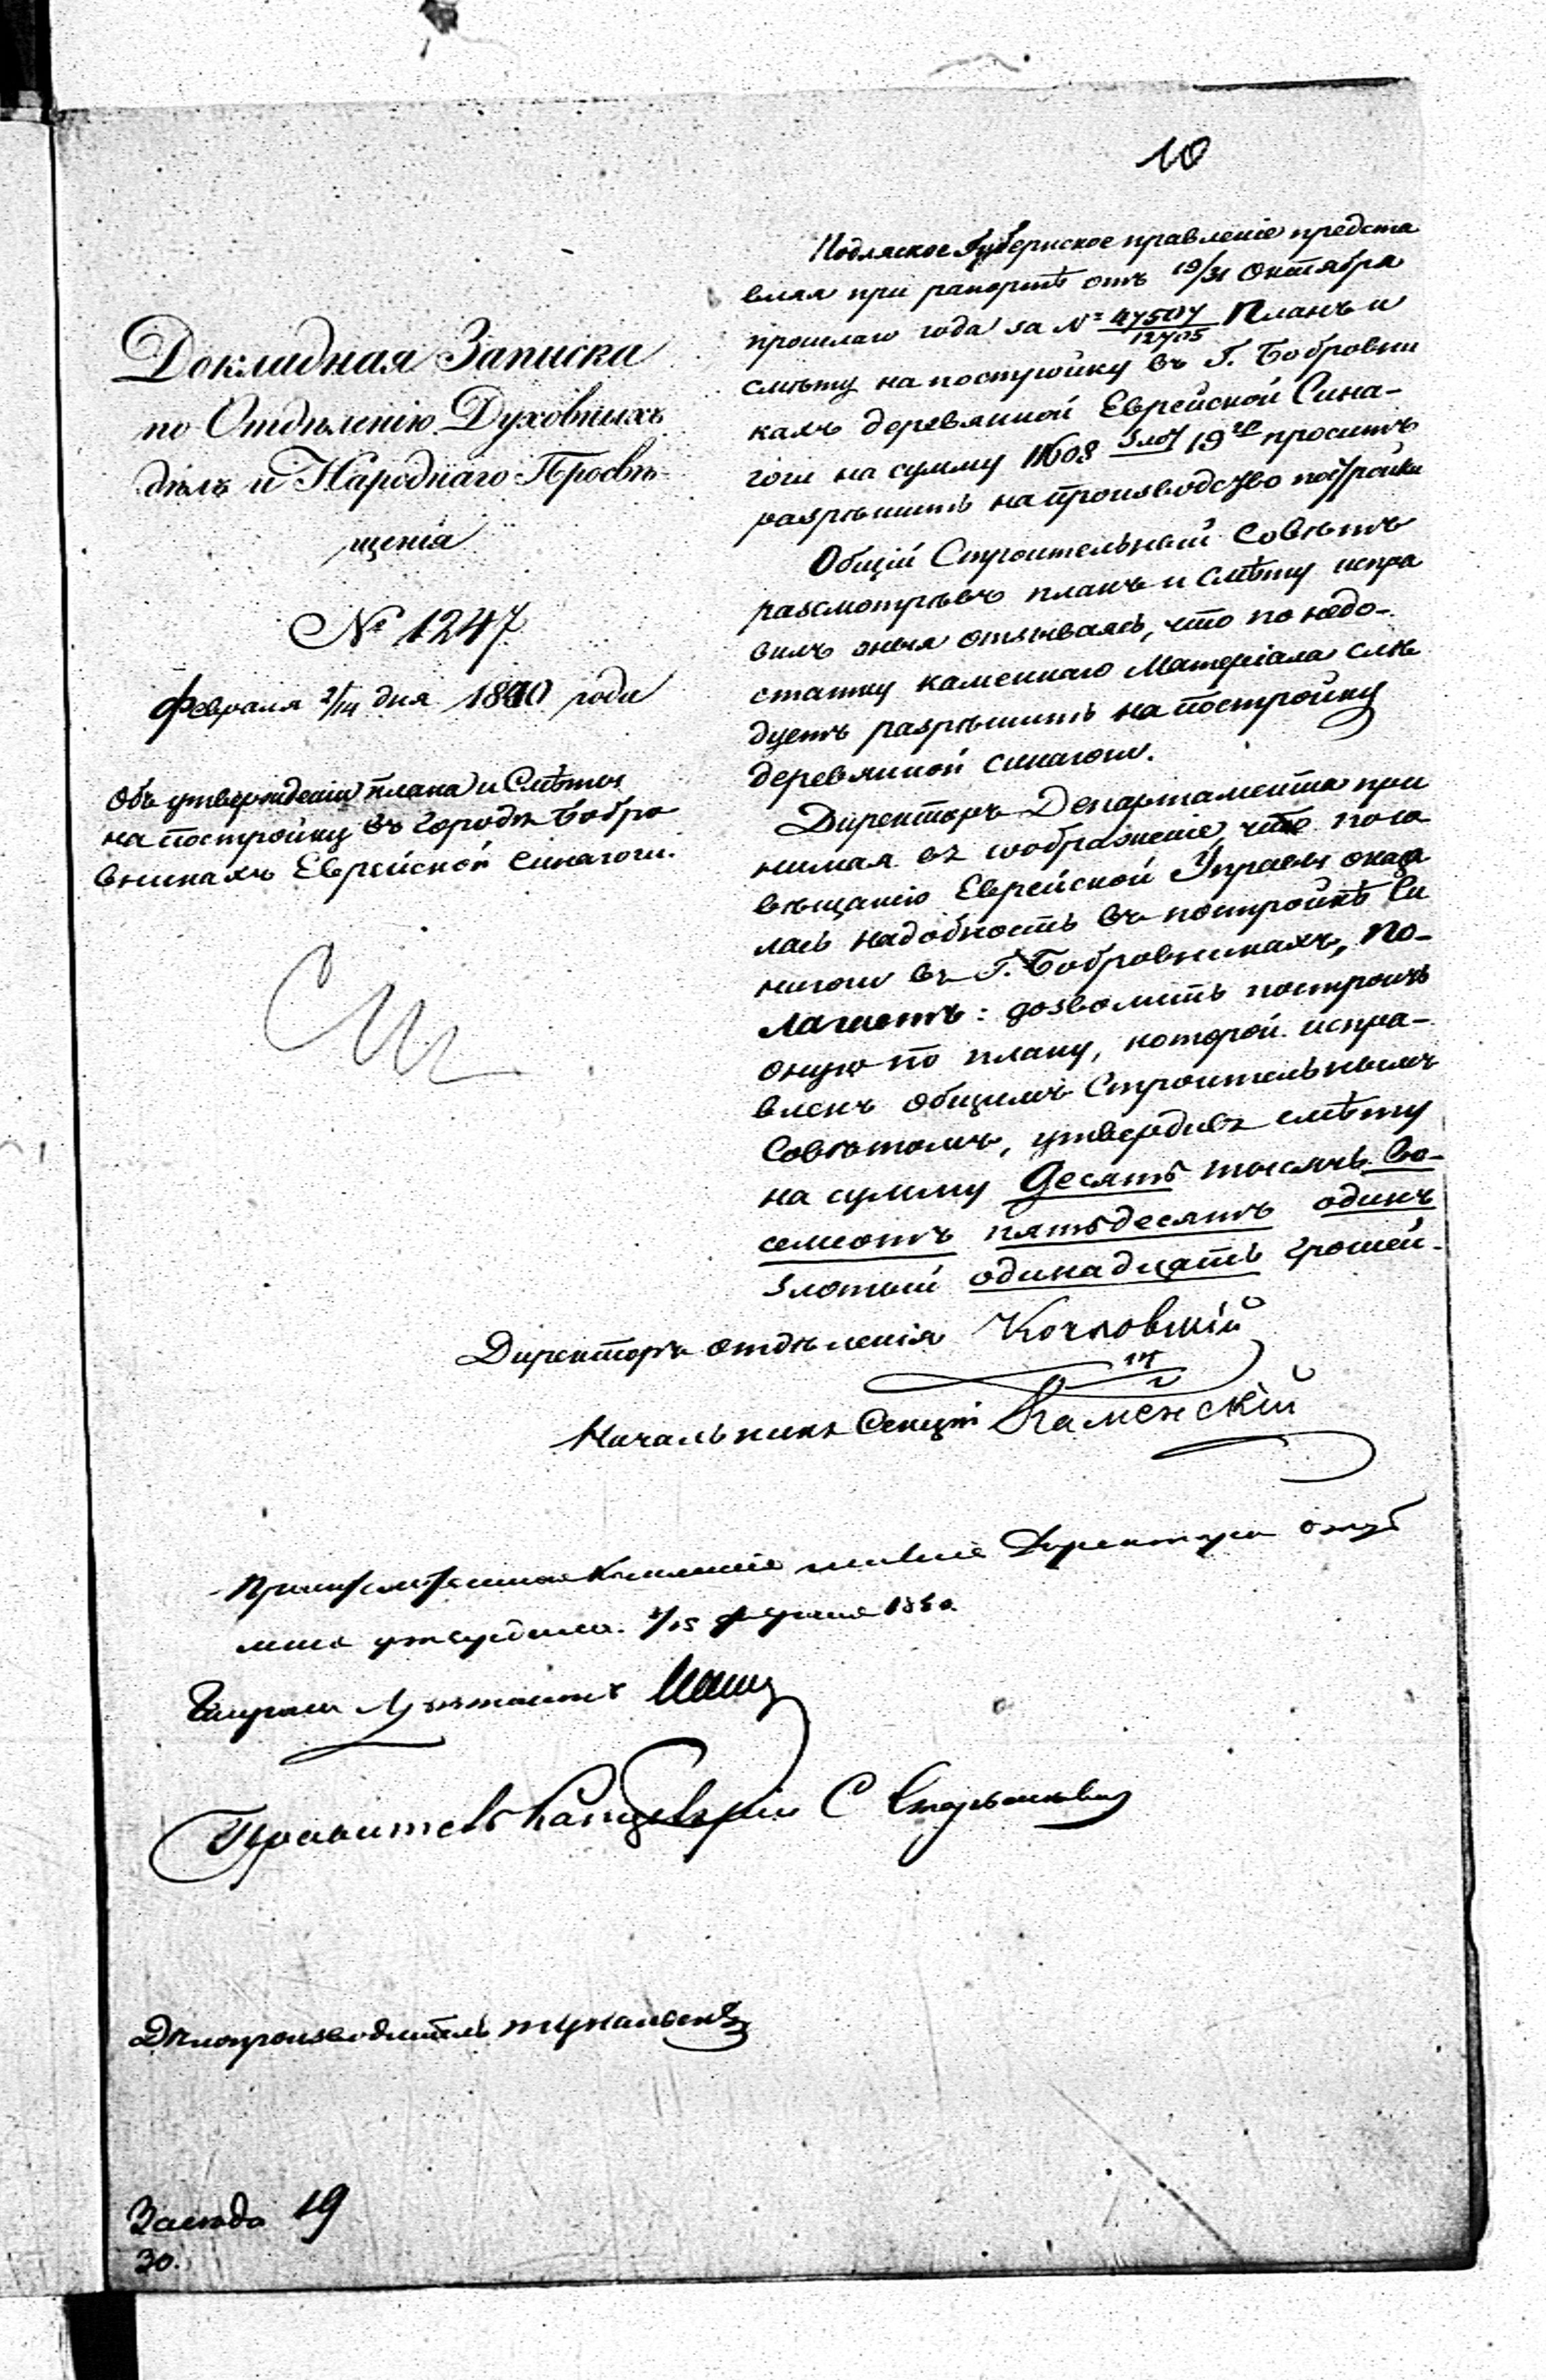 10
Докладная Записка
по Отдѣленію Духовныхъ
дѣлъ и Народнаго Просвѣ-
щенія
№ 1247
Февраля 2/14 дня 1840 года
Объ утвержденіи плана и Смѣты
на постройку въ городѣ Бобро
вникахъ Еврейской Синагоги.
Подляское Губернское правленіе предста
вляя при рапортѣ отъ 19/31 Октября
прошлаго года за № 47507/12705 Планъ и
смѣту на постройку въ Г. Бобровни
кахъ деревянной Еврейской Сина-
гоги на сумму 11608 злот 19 гр проситъ
разрѣшить на производство постройки
Общій Строительный Совѣтъ
разсмотрѣвъ планъ и смѣту испра
вилъ оныя отзываясь, что по недо-
статку каменнаго Матеріала слѣ
дуетъ разрѣшить на постройку
деревянной синагоги.
Директоръ Департамента при
нимая въ соображеніе, что по со
вѣщанію Еврейской Управы оказа
лась надобность въ постройкѣ Си
нагоги въ Г. Бобровникахъ, По-
лагаетъ: дозволить построить
оную по плану, которой испра-
вленъ общимъ Строительнымъ
Совѣтомъ, утвердивъ смѣту
на сумму Десять тысячъ во-
семсотъ пятьдесятъ одинъ
злотый одинадцать грошей.
Директоръ отдѣленія
Начальникъ Секціи Каменскій
Правительственная Коммисія мнѣніе Директора отдѣ
ленія утвердила. 3/15 Февраля 1840
Генералъ Лейтенантъ
Правитель Канцеляріи С
Дѣлопроизводитель
19
30.